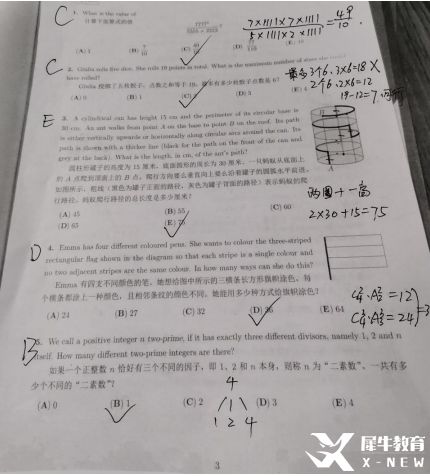 C
1. What is the value of
计算下面算式的值
7777²
5555 × 2222
7×1111×7×1111
5×1111×2×1111
= 49
10
(A) 1
(B) 7
10
(C) 49
10
C
2. Giulia rolls five dice. She rolls 19 points in total. What is the maximum number of sixes she could
have rolled?
Giulia 投掷了五枚骰子,点数之和等于 19,
(A) 0
(B) 1
(C) 2
(D) 3
(E) 4
3个6, 3×6=18 X
2个6, 2×6=12
19-12=7, 可行
E
3. A cylindrical can has height 15 cm and the perimeter of its circular base is
30 cm. An ant walks from point A on the base to point B on the roof. Its path
is either vertically upwards or horizontally along circular arcs around the can. Its
path is shown with a thicker line (black for path on the front of the can and
grey at the back). What is the length, in cm, of the ant's path?
圆柱形罐子的高度为 15 厘米, 底面圆形的周长为 30 厘米. 一只蚂蚁从底面上
的 A 点爬到顶面上的 B 点,
如图所示, 粗线 (黑色为罐子正面的路径, 灰色为罐子背面的路径) 表示蚂蚁的爬
行路径. 蚂蚁爬行路径的总长度是多少厘米?
(A) 45
(B) 55
(C) 60
(D) 65
(E) 75
两圆+一高
2×30+15=75
D
4. Emma has four different coloured pens. She wants to colour the three-striped
rectangular flag shown in the diagram so that each stripe is a single colour and
no two adjacent stripes are the same colour. In how many ways can she do this?
Emma 有四支不同颜色的笔, 她想给图中所示的三横条长方形旗帜涂色, 每
个横条都涂上一种颜色, 且相邻条纹的颜色不同, 她能用多少种方式给旗帜涂色?
(A) 24
(B) 27
(C) 32
(D) 36
(E) 64
B
5. We call a positive integer n two-prime, if it has exactly three different divisors, namely 1, 2 and n
itself. How many different two-prime integers are there?
如果一个正整数 n 恰好有三个不同的因子, 即 1、2 和 n 本身, 则称 n 为 “二素数”. 一共有多
少个不同的 “二素数”?
(A) 0
(B) 1
(C) 2
(D) 3
(E) 4
4
1 2 4
3
犀牛教育
X-NEW